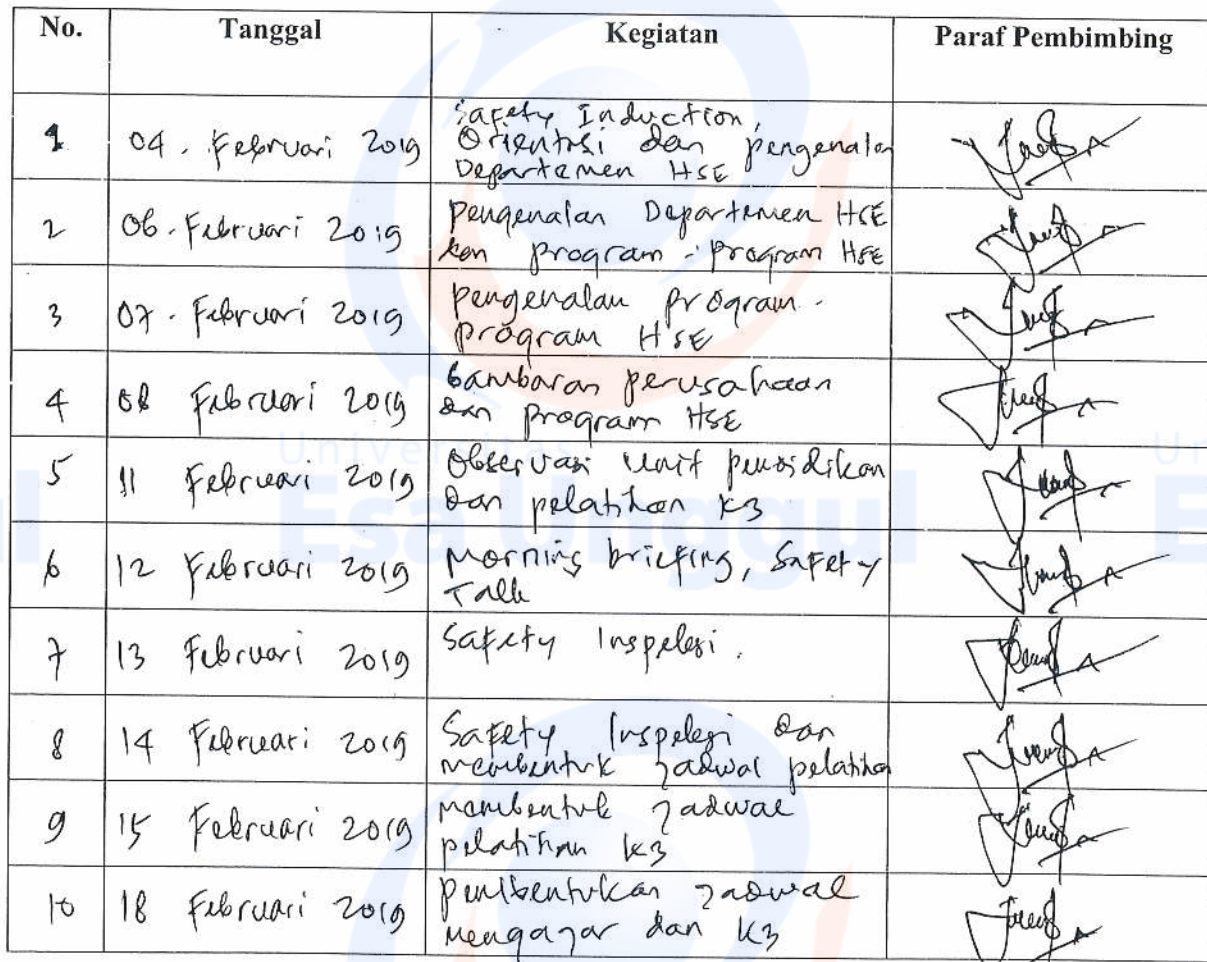 No. Tanggal Kegiatan Paraf Pembimbing
1 04. Februari 2019 Safety Induction,
Orientasi dan pengenalan
Departemen HSE
2 06. Februari 2019 pengenalan Departemen HSE
dan program-program HSE
3 07. Februari 2019 pengenalan program-
program HSE
4 08 Februari 2019 Gambaran perusahaan
dan program HSE
5 11 Februari 2019 Observasi unit pendidikan
dan pelatihan K3
6 12 Februari 2019 Morning briefing, Safety
Talk
7 13 Februari 2019 Safety Inspeksi.
8 14 Februari 2019 Safety Inspeksi dan
membentuk jadwal pelatihan
9 15 Februari 2019 membentuk jadwal
pelatihan K3
10 18 Februari 2019 pembentukan jadwal
mengajar dan K3
Universitas
Esa Unggul